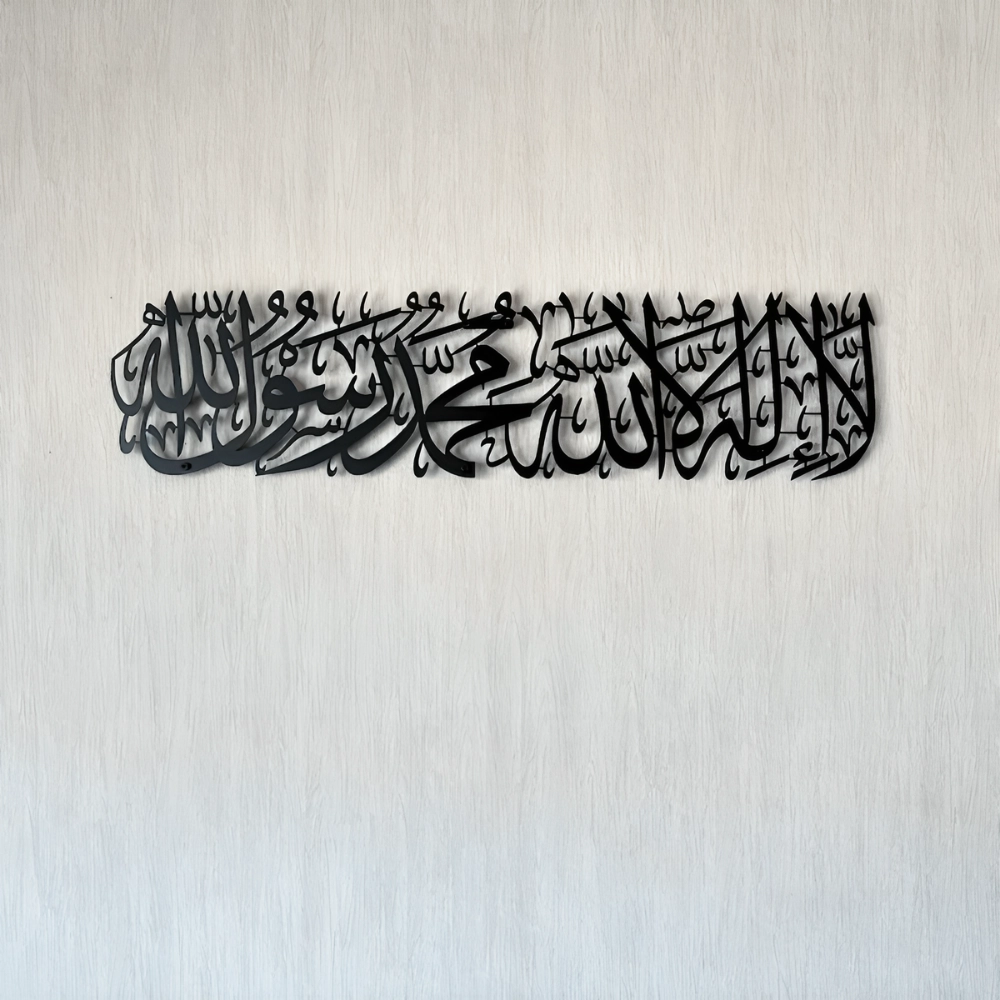 لَا إِلٰهَ إِلَّا اللهُ مُحَمَّدٌ رَسُوْلُ اللهِ